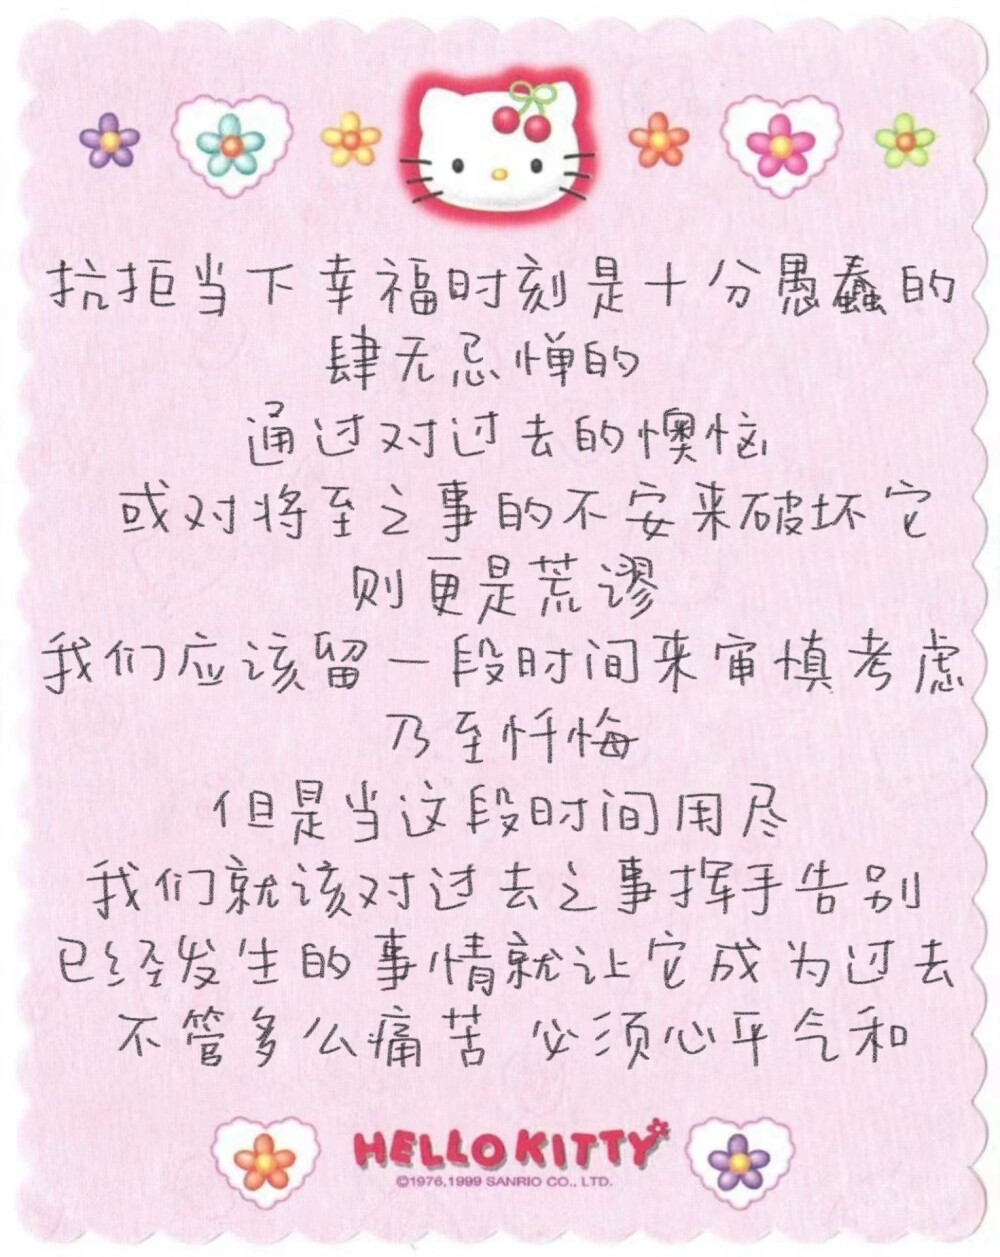 抗拒当下幸福时刻是十分愚蠢的
肆无忌惮的
通过对过去的懊恼
或对将至之事的不安来破坏它
则更是荒谬
我们应该留一段时间来审慎考虑
乃至忏悔
但是当这段时间用尽
我们就该对过去之事挥手告别
已经发生的事情就让它成为过去
不管多么痛苦 必须心平气和
HELLO KITTY
©1976,1999 SANRIO CO., LTD.